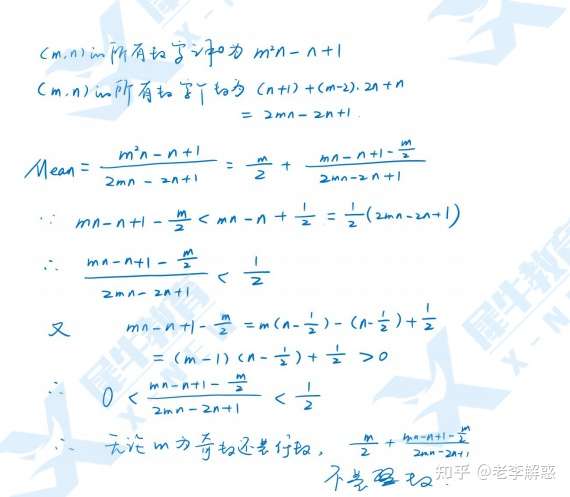 (m,n)的所有数字之和为 m²n - n + 1
(m,n)的所有数字个数为 (n+1) + (m-2)·2n + n
= 2mn - 2n + 1.
Mean = \frac{m²n - n + 1}{2mn - 2n + 1} = \frac{m}{2} + \frac{mn - n + 1 - \frac{m}{2}}{2mn - 2n + 1}
∵ mn - n + 1 - \frac{m}{2} < mn - n + \frac{1}{2} = \frac{1}{2}(2mn - 2n + 1)
∴ \frac{mn - n + 1 - \frac{m}{2}}{2mn - 2n + 1} < \frac{1}{2}
又 mn - n + 1 - \frac{m}{2} = m(n - \frac{1}{2}) - (n - \frac{1}{2}) + \frac{1}{2}
= (m-1)(n - \frac{1}{2}) + \frac{1}{2} > 0
∴ 0 < \frac{mn - n + 1 - \frac{m}{2}}{2mn - 2n + 1} < \frac{1}{2}
∴ 无论 m 为奇数还是偶数, \frac{m}{2} + \frac{mn - n + 1 - \frac{m}{2}}{2mn - 2n + 1}
不是整数.
知乎 @老李解惑
犀牛教育